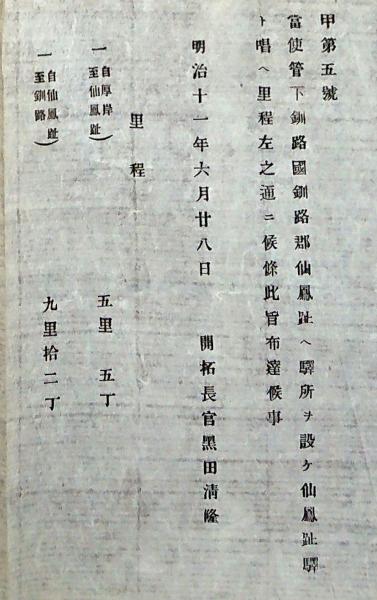 甲第五號
當使管下釧路國釧路郡仙鳳趾ヘ驛所ヲ設ケ仙鳳趾驛
ト唱ヘ里程左之通ニ候條此旨布達候事
明治十一年六月廿八日 開拓長官黑田淸隆
里程
一 自厚岸至仙鳳趾 五里五丁
一 自仙鳳趾至釧路 九里拾二丁